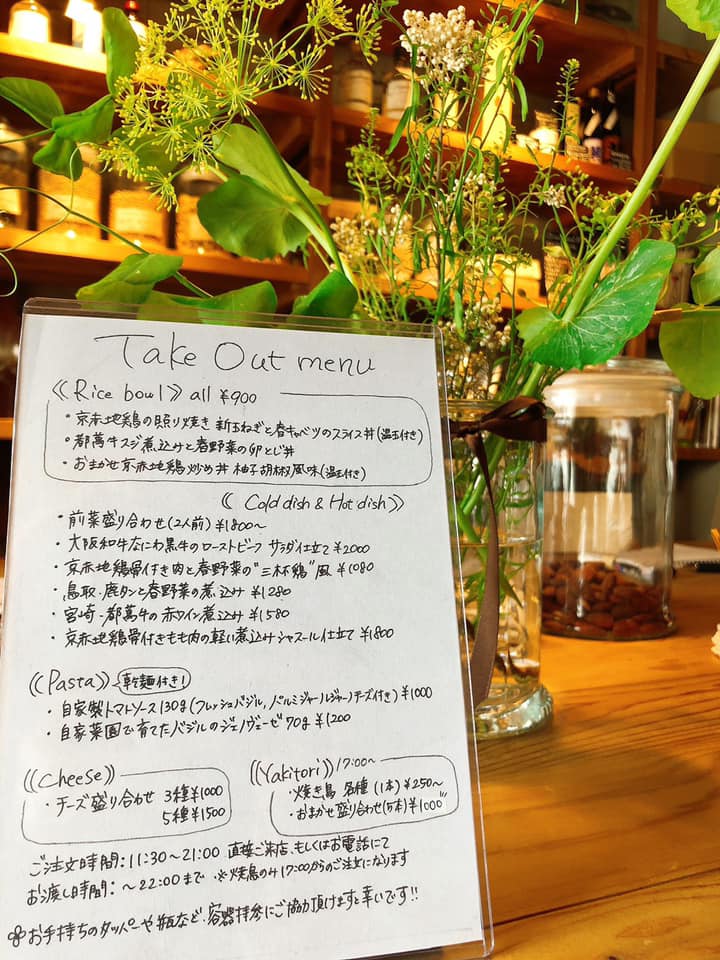 Take Out menu
《Rice bowl》 all ¥900
・京赤地鶏の照り焼き 新玉ねぎと春キャベツのスライス丼(温玉付き)
・都萬牛スジ煮込みと春野菜の卵とじ丼
・おまかせ京赤地鶏炒め丼 柚子胡椒風味(温玉付き)
《Cold dish & Hot dish》
・前菜盛り合わせ(2人前) ¥1800〜
・大阪和牛なにわ黒牛のローストビーフ サラダ仕立て ¥2000
・京赤地鶏骨付き肉と春野菜の"三杯鶏"風 ¥1080
・鳥取・鹿タンと春野菜の煮込み ¥1280
・宮崎・都萬牛の赤ワイン煮込み ¥1580
・京赤地鶏骨付きもも肉の軽い煮込みシャスール仕立て ¥1800
《Pasta》 乾麺付き!
・自家製トマトソース130g(フレッシュバジル,パルミジャーノレジャーノチーズ付き) ¥1000
・自家菜園で育てたバジルのジェノヴェーゼ70g ¥1200
《Cheese》
・チーズ盛り合わせ 3種¥1000
5種¥1500
《Yakitori》 17:00〜
・焼き鳥 各種(1本) ¥250〜
・おまかせ盛り合わせ(5本) ¥1000
ご注文時間:11:30〜21:00 直接ご来店、もしくはお電話にて
お渡し時間:〜22:00まで ※焼鳥のみ17:00からのご注文になります
お手持ちのタッパーや瓶など、容器持参にご協力頂けますと幸いです!!